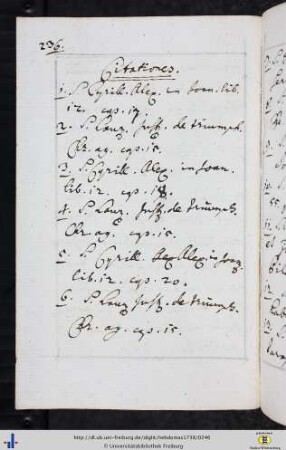 236.
Citationes.
1. S. Cyrill. Alex. in Joan. lib.
12. cap. 17
2. S. Laur. Just. de triumph.
Chr. ag. cap. 15.
3. S. Cyrill. Alex. in Joan.
lib. 12. cap. 18.
4. S. Laur. Just. de triumph.
Chr. ag. cap. 15.
5. S. Cyrill. Alex. in Joan.
lib. 12. cap. 20.
6. S. Laur. Just. de triumph.
Chr. ag. cap. 15.
http://dl.ub.uni-freiburg.de/diglit/hebdomas1738/0246
© Universitätsbibliothek Freiburg